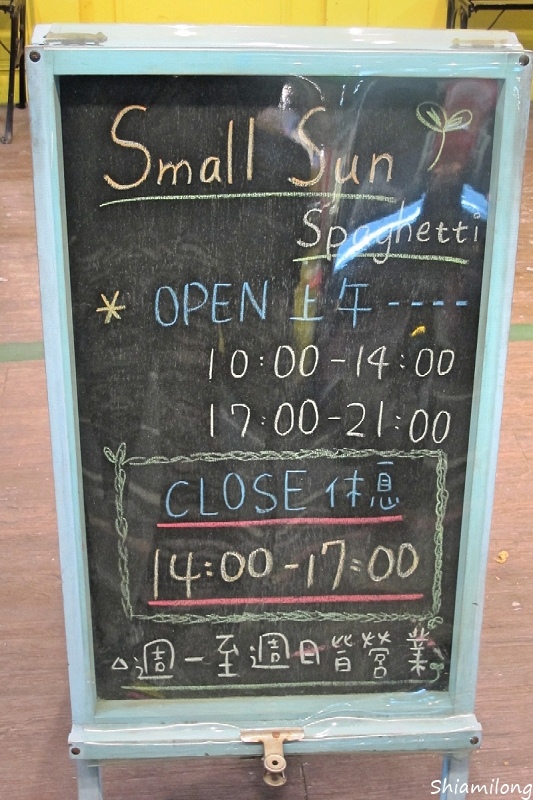 Small Sun
Spaghetti
* OPEN 上午 ----
10:00-14:00
17:00-21:00
CLOSE 休息
14:00-17:00
△週一至週日皆營業
Shiamilong